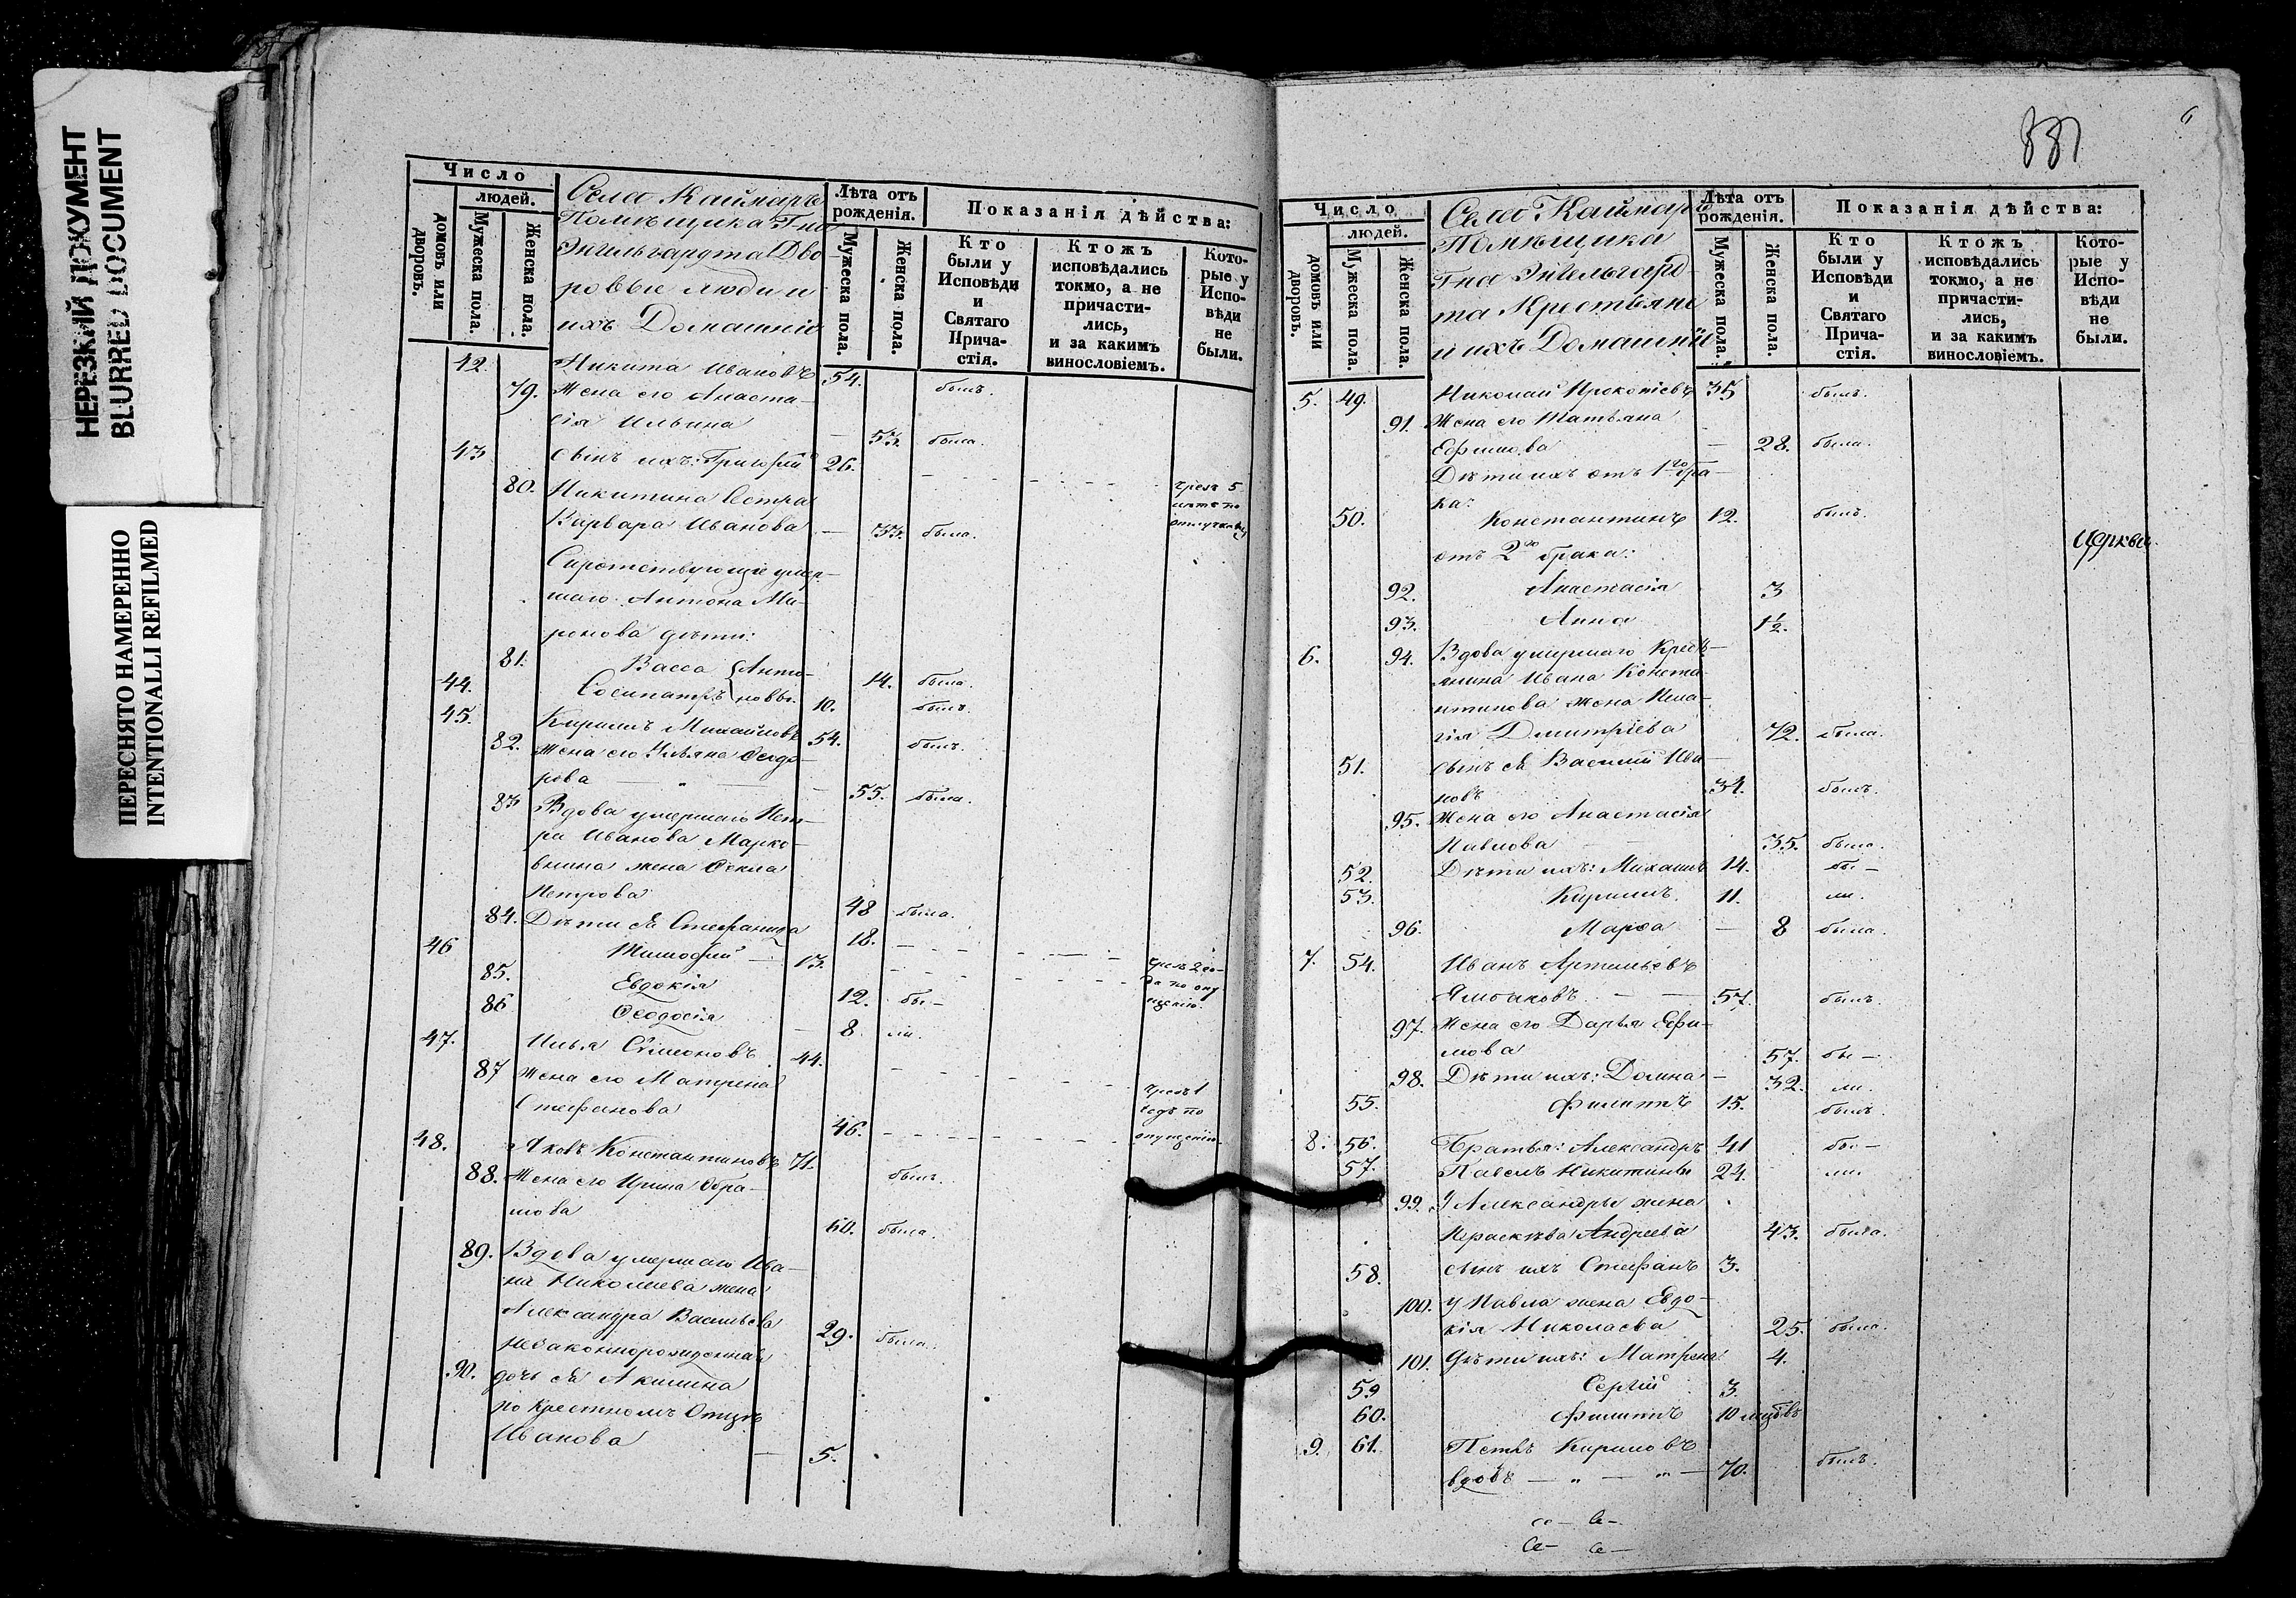 НЕРЕЗКИЙ ДОКУМЕНТ
BLURRED DOCUMENT
ПЕРЕСНЯТО НАМЕРЕННО
INTENTIONALLI REFILMED
Число
людей.
домовъ или дворовъ.
Мужеска пола.
Женска пола.
Села Каймаръ
Помѣщика Г-на
Энгельгардта Дво-
ровые люди и
ихъ Домашніе
Лѣта отъ рожденія.
Мужеска пола.
Женска пола.
Показанія дѣйства:
Кто были у Исповѣди и Святаго Прича-стія.
Ктожъ исповѣдались токмо, а не причасти-лись, и за какимъ винословіемъ.
Кото-рые у Испо-вѣди не были.
42. Никита Ивановъ 54. былъ.
79. Жена его Анаста-
сія Ильина — 53. была.
43 сынъ ихъ: Григорій 26.
80. Никитина Сестра
Варвара Иванова — 33. была.
чрезъ 5
лѣтъ по
Сиротствующіе умер-
шаго Антона Ми-
ронова дѣти:
81. Васса 14. была.
Анто-
44. Сосипатръ новы. 10. былъ.
45. Кирилъ Михайловъ 54. былъ.
82. Жена его Ульяна Ѳедо-
рова — 55. была.
83 Вдова умершаго Пет-
ра Иванова Марко-
внина жена Ѳекла
Петрова 48 была.
84. Дѣти ея Стефанида 18. —
46 Тимофей — 13.
чрезъ 2 го-
да по опу
щенію.
85. Евдокія 12. бы—
86 Ѳеодосія — 8 ли.
47. Илья Сѵмеоновъ 44.
87 Жена его Матрена
Стефанова 46. —
чрезъ 1
годъ по
опущенію.
48. Яковъ Константиновъ 71. былъ.
88. Жена его Ирина Абра-
мова 60. была.
89. Вдова умершаго Ива-
на Николаева жена
Александра Васильева 29. была.
незаконнорожденная
90. дочь ея Акилина
по крестномъ Отцѣ
Иванова — 5.
331
6
Число
людей.
домовъ или дворовъ.
Мужеска пола.
Женска пола.
Села Каймаръ
Помѣщика
Г-на Энгельгард-
та Крестьяне
и ихъ Домашніе
Лѣта отъ рожденія.
Мужеска пола.
Женска пола.
Показанія дѣйства:
Кто были у Исповѣди и Святаго Прича-стія.
Ктожъ исповѣдались токмо, а не причасти-лись, и за какимъ винословіемъ.
Кото-рые у Испо-вѣди не были.
5. 49. Николай Прокопіевъ 35 былъ.
91. Жена его Татьяна
Ефимова — 28. была.
Дѣти ихъ отъ 1го бра-
ка:
50. Константинъ 12. былъ.
отъ 2го брака:
92. Анастасія 3
93. Анна 1½.
6. 94. Вдова умершаго Кресть-
янина Ивана Конста-
нтинова жена Пела-
гія Димитріева 72. была.
51. сынъ ея Василій Ива-
новъ 34. былъ.
95. Жена его Анастасія
Павлова 35. была.
52. Дѣти ихъ: Михаилъ 14. бы—
53. Кирилъ. 11. ли.
96. Марѳа — 8 была.
7. 54. Иванъ Артемьевъ
— 57. былъ.
97. Жена его Дарья Ефи-
мова 57. бы—
98. Дѣти ихъ: Домна — 32. ли.
55. Филиппъ 15. былъ.
8. 56. Братья: Александръ 41 бы—
57. Павелъ Никитины 24. ли.
99. У Александры жена
Параскѣва Андреева 43. была.
58. сынъ ихъ Стефанъ 3.
100. у Павла жена Евдо-
кія Николаева 25. была.
101. дѣти ихъ: Матрена 4.
59 Сергій 3.
60. Филиппъ 10
9. 61. Петръ Кириловъ
вдовъ — „ — „ — 70. былъ.